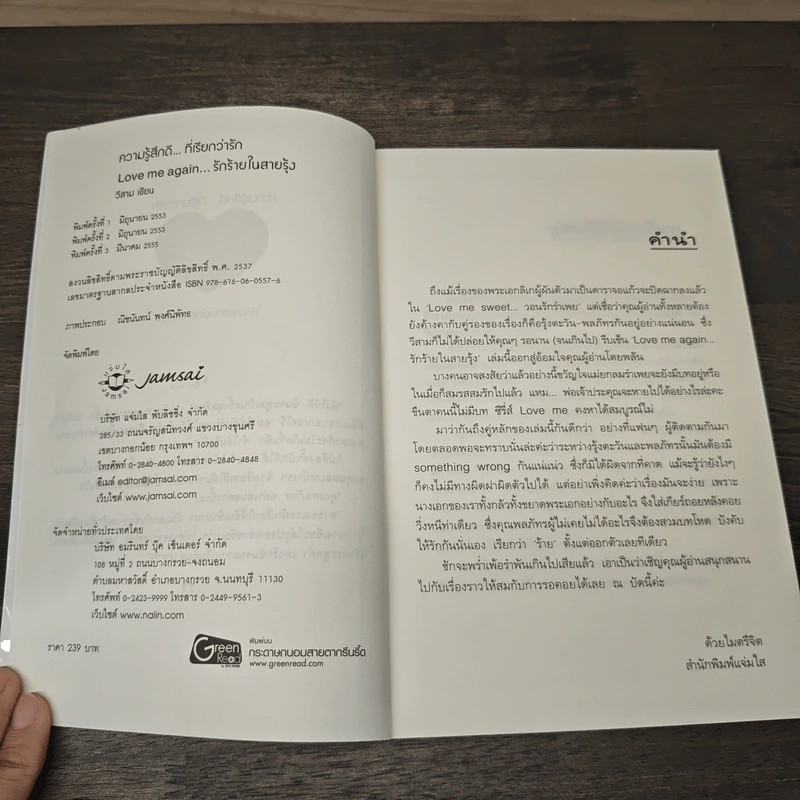 ความรู้สึกดี... ที่เรียกว่ารัก
Love me again... รักร้ายในสายรุ้ง
วิสาม เขียน
พิมพ์ครั้งที่ 1 มิถุนายน 2553
พิมพ์ครั้งที่ 2 มิถุนายน 2553
พิมพ์ครั้งที่ 3 มีนาคม 2555
สงวนลิขสิทธิ์ตามพระราชบัญญัติลิขสิทธิ์ พ.ศ. 2537
เลขมาตรฐานสากลประจำหนังสือ ISBN 978-616-06-0557-6
ภาพประกอบ ณิชนันทน์ พงศ์นิพัทธ
จัดพิมพ์โดย
แจ่มใส
jamsai
Jamsai
บริษัท แจ่มใส พับลิชชิ่ง จำกัด
285/33 ถนนจรัญสนิทวงศ์ แขวงบางขุนศรี
เขตบางกอกน้อย กรุงเทพฯ 10700
โทรศัพท์ 0-2840-4800 โทรสาร 0-2840-4848
อีเมล์ editor@jamsai.com
เว็บไซต์ www.jamsai.com
จัดจำหน่ายทั่วประเทศโดย
บริษัท อมรินทร์ บุ๊ค เซ็นเตอร์ จำกัด
108 หมู่ที่ 2 ถนนบางกรวย-จงถนอม
ตำบลมหาสวัสดิ์ อำเภอบางกรวย จ.นนทบุรี 11130
โทรศัพท์ 0-2423-9999 โทรสาร 0-2449-9561-3
เว็บไซต์ www.naiin.com
ราคา 239 บาท
Green Read
พิมพ์บน
กระดาษถนอมสายตากรีนรี้ด
www.greenread.com
คำนำ
ถึงแม้เรื่องของพระเอกลิเกผู้ผันตัวมาเป็นดาราจอแก้วจะปิดฉากลงแล้ว
ใน 'Love me sweet... วอนรักรำเพย' แต่เชื่อว่าคุณผู้อ่านทั้งหลายต้อง
ยังค้างคากับคู่รองของเรื่องก็คือรุ้งตะวัน-พลภัทรกันอยู่อย่างแน่นอน ซึ่ง
วิสามก็ไม่ได้ปล่อยให้คุณๆ รอนาน (จนเกินไป) รีบเข็น 'Love me again...
รักร้ายในสายรุ้ง' เล่มนี้ออกสู่อ้อมใจคุณผู้อ่านโดยพลัน
บางคนอาจสงสัยว่าแล้วอย่างนี้ขวัญใจแม่ยกลมรำเพยจะยังมีบทอยู่หรือ
ในเมื่อก็สมรสสมรักไปแล้ว แหม... พ่อเจ้าประคุณจะหายไปได้อย่างไรล่ะคะ
ขืนตาคนนี้ไม่มีบท ซีรี่ส์ Love me คงหาได้สมบูรณ์ไม่
มาว่ากันถึงคู่หลักของเล่มนี้กันดีกว่า อย่างที่แฟนๆ ผู้ติดตามกันมา
โดยตลอดพอจะทราบนั่นล่ะค่ะว่าระหว่างรุ้งตะวันและพลภัทรนั้นมันต้องมี
something wrong กันแน่แน่ว ซึ่งก็มิได้ผิดจากที่คาด แม้จะรู้ว่ายังไงๆ
ก็คงไม่มีทางผิดฝาผิดตัวไปได้ แต่อย่าเพิ่งคิดค่ะว่าเรื่องมันจะง่าย เพราะ
นางเอกของเราทั้งกลัวทั้งขยาดพระเอกอย่างกับอะไร จึงใส่เกียร์ถอยหลังคอย
วิ่งหนีท่าเดียว ซึ่งคุณพลภัทรผู้ไม่เคยไม่ได้อะไรจึงต้องสวมบทโหด บังคับ
ให้รักกันนั่นเอง เรียกว่า 'ร้าย' ตั้งแต่ออกตัวเลยทีเดียว
ชักจะพร่ำเพ้อรำพันเกินไปเสียแล้ว เอาเป็นว่าเชิญคุณผู้อ่านสนุกสนาน
ไปกับเรื่องราวให้สมกับการรอคอยได้เลย ณ บัดนี้ค่ะ
ด้วยไมตรีจิต
สำนักพิมพ์แจ่มใส